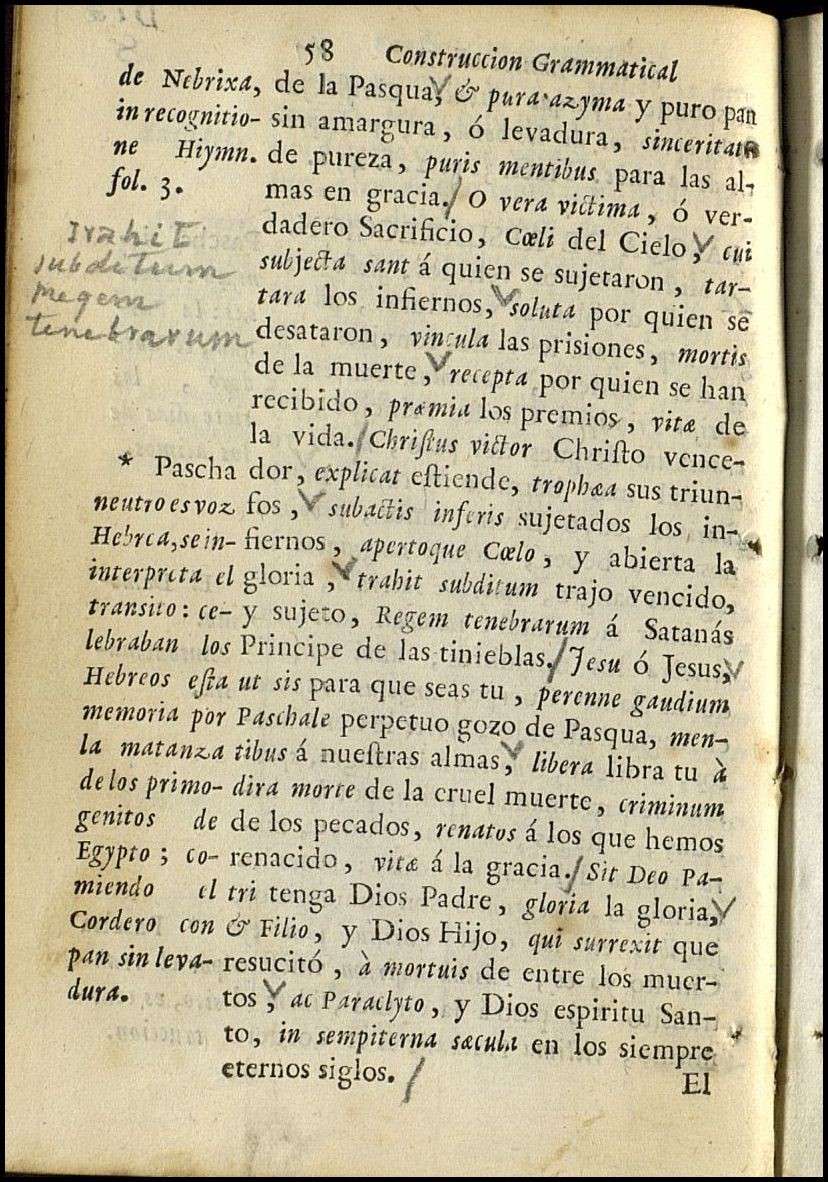 58 Construccion Grammatical
de Nebrixa,
in recognitio-
ne Hiymn.
fol. 3.
trahit
subditum
Regem
tenebrarum
* Pascha
neutro es voz
Hebrea, se in-
interpreta el
transito: ce-
lebraban los
Hebreos esta
memoria por
la matanza
de los primo-
genitos de
Egypto; co-
miendo el
Cordero con
pan sin leva-
dura.
de la Pasqua, & pura azyma y puro pan
sin amargura, ó levadura, sinceritatis
de pureza, puris mentibus para las al-
mas en gracia. O vera victima, ó ver-
dadero Sacrificio, Cœli del Cielo, cui
subjecta sant á quien se sujetaron, tar-
tara los infiernos, soluta por quien se
desataron, vincula las prisiones, mortis
de la muerte, recepta por quien se han
recibido, præmia los premios, vitæ de
la vida. Christus victor Christo vence-
dor, explicat estiende, trophæa sus triun-
fos, subactis inferis sujetados los in-
fiernos, apertoque Cœlo, y abierta la
gloria, trahit subditum trajo vencido,
y sujeto, Regem tenebrarum á Satanás
Principe de las tinieblas. Jesu ó Jesus,
ut sis para que seas tu, perenne gaudium
Paschale perpetuo gozo de Pasqua, men-
tibus á nuestras almas, libera libra tu à
dira morte de la cruel muerte, criminum
de los pecados, renatos á los que hemos
renacido, vitæ á la gracia. Sit Deo Pa-
tri tenga Dios Padre, gloria la gloria,
& Filio, y Dios Hijo, qui surrexit que
resucitó, à mortuis de entre los muer-
tos, ac Paraclyto, y Dios espiritu San-
to, in sempiterna sæcula en los siempre
eternos siglos.
El